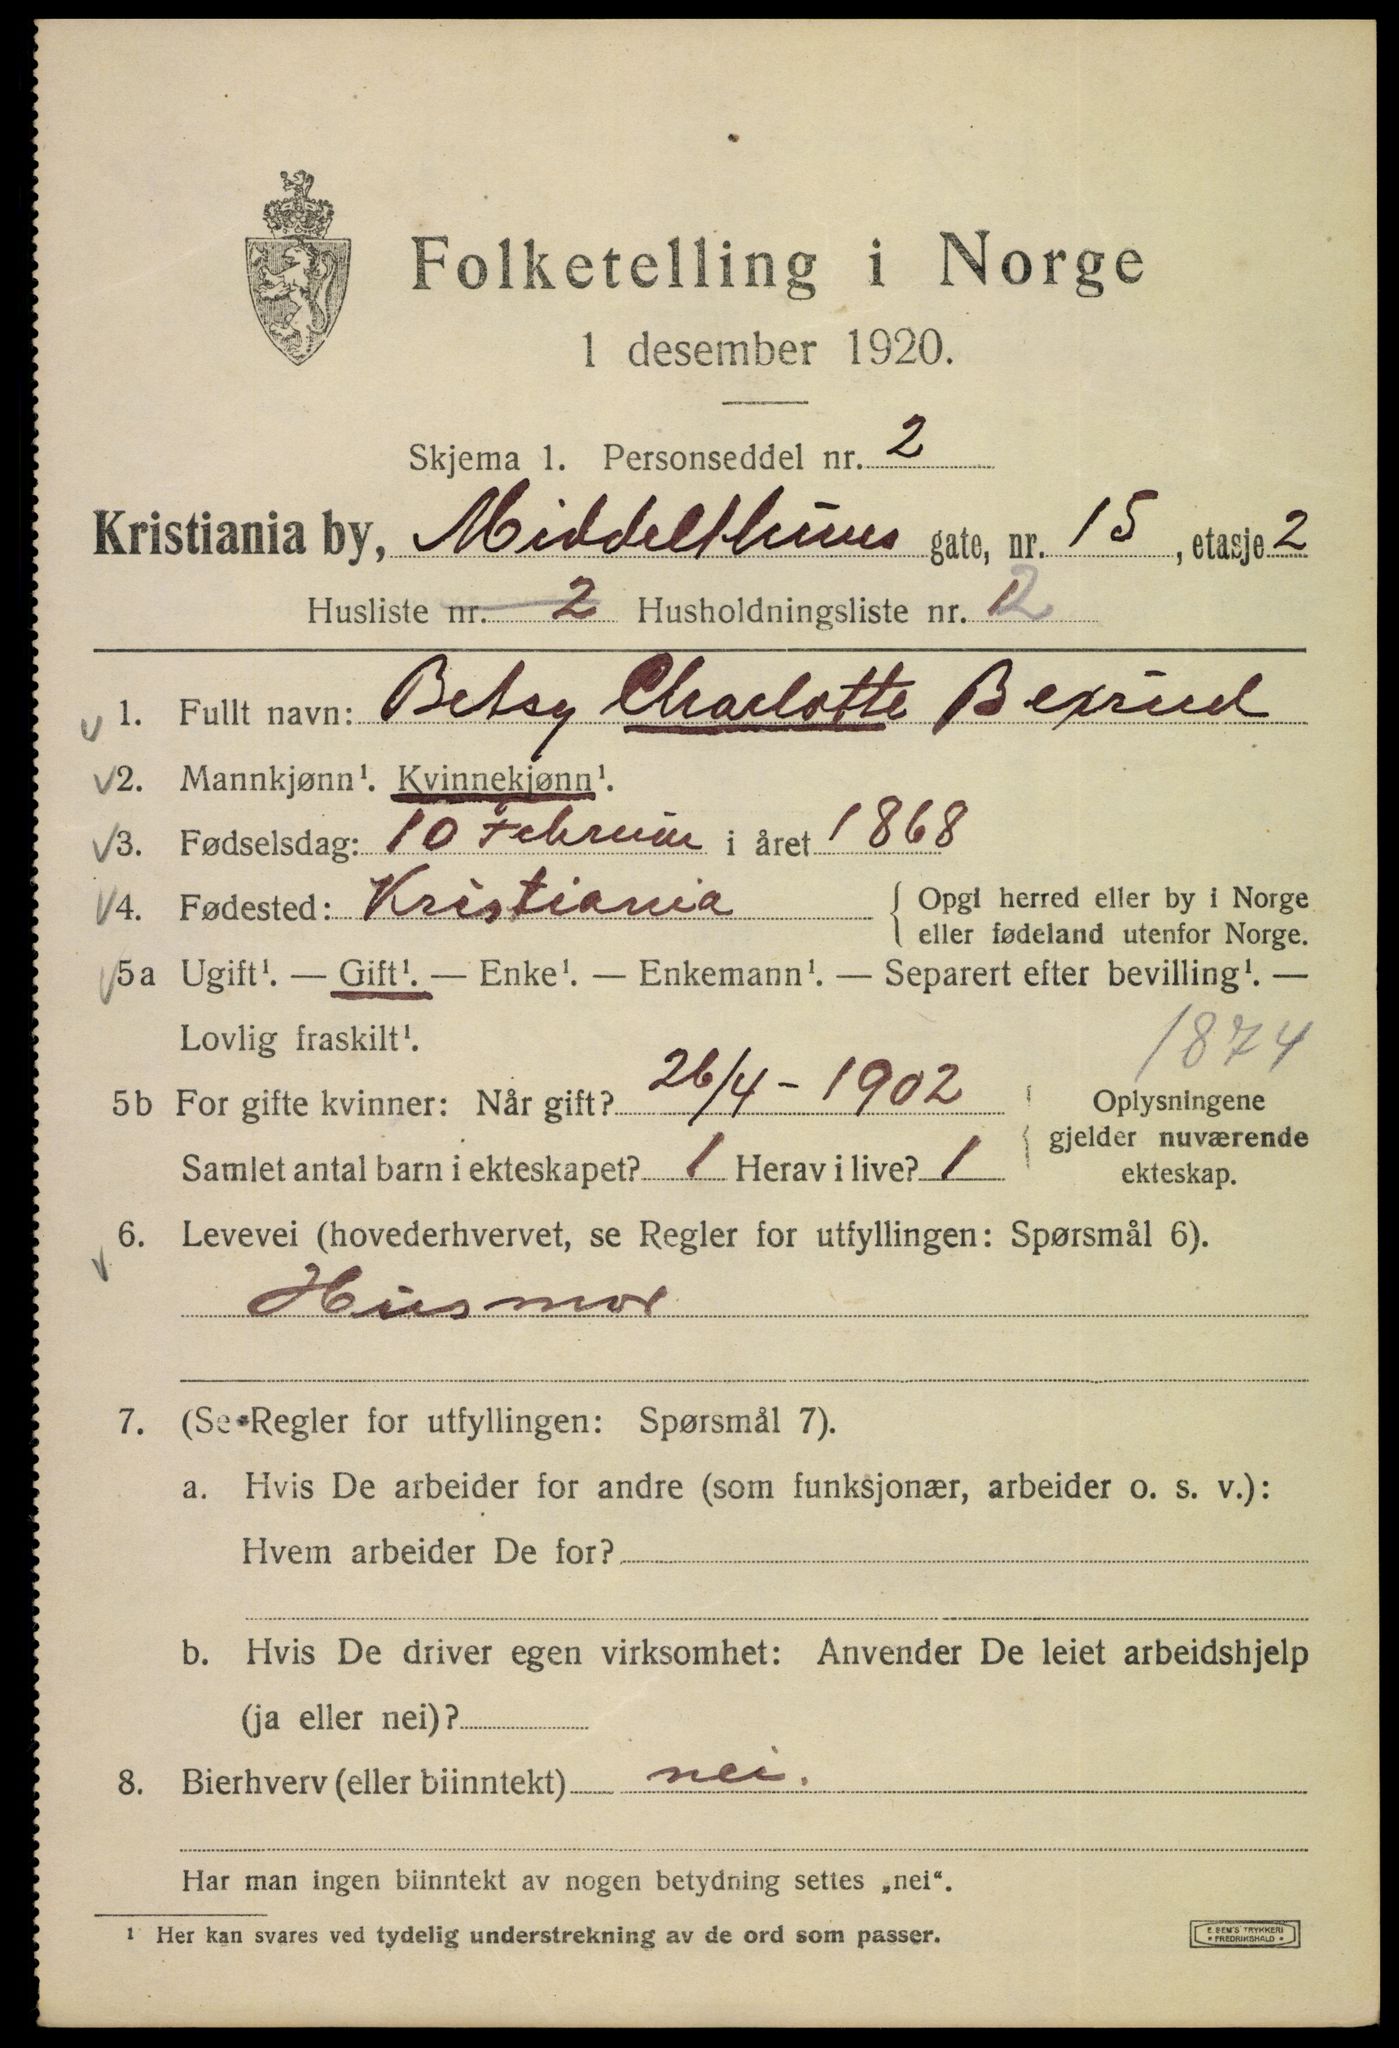 Folketelling i Norge
1 desember 1920.
Skjema 1. Personseddel nr. 2
Kristiania by, Middelthuns gate, nr. 15, etasje 2
Husliste nr. 2 Husholdningsliste nr. 2
1. Fullt navn: Betsy Charlotte Bexrud
2. Mannkjønn¹. Kvinnekjønn¹.
3. Fødselsdag: 10 Februar i året 1868
4. Fødested: Kristiania { Opgi herred eller by i Norge
eller fødeland utenfor Norge.
5a Ugift¹. — Gift¹. — Enke¹. — Enkemann¹. — Separert efter bevilling¹. —
Lovlig fraskilt¹. 1874
5b For gifte kvinner: Når gift? 26/4 - 1902 Oplysningene
gjelder nuværende
Samlet antal barn i ekteskapet? 1 Herav i live? 1 ekteskap.
6. Levevei (hovederhvervet, se Regler for utfyllingen: Spørsmål 6).
Husmor
7. (Se Regler for utfyllingen: Spørsmål 7).
a. Hvis De arbeider for andre (som funksjonær, arbeider o. s. v.):
Hvem arbeider De for?
b. Hvis De driver egen virksomhet: Anvender De leiet arbeidshjelp
(ja eller nei)?
8. Bierhverv (eller biinntekt) nei.
Har man ingen biinntekt av nogen betydning settes „nei“.
¹ Her kan svares ved tydelig understrekning av de ord som passer.
E. SEM'S TRYKKERI
* FREDRIKSHALD *